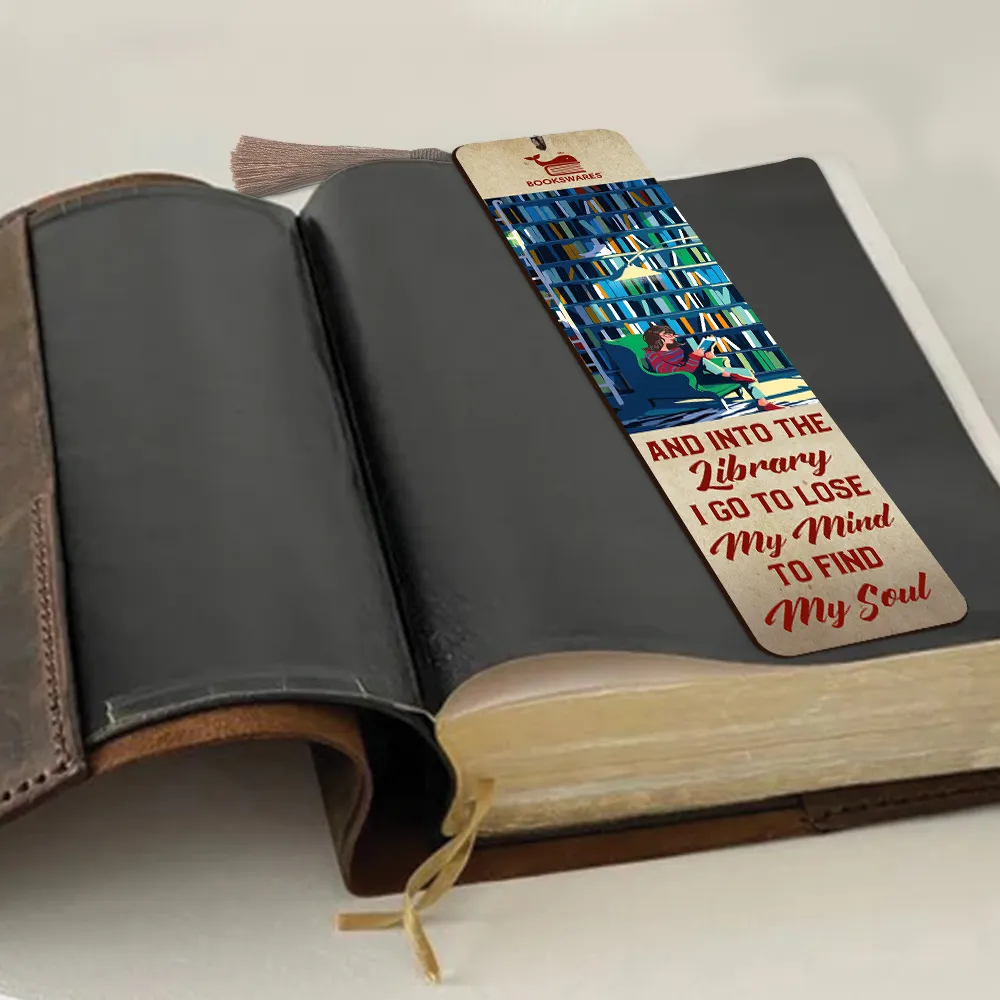 BOOKSWARES
AND INTO THE
Library
I GO TO LOSE
My Mind
TO FIND
My Soul